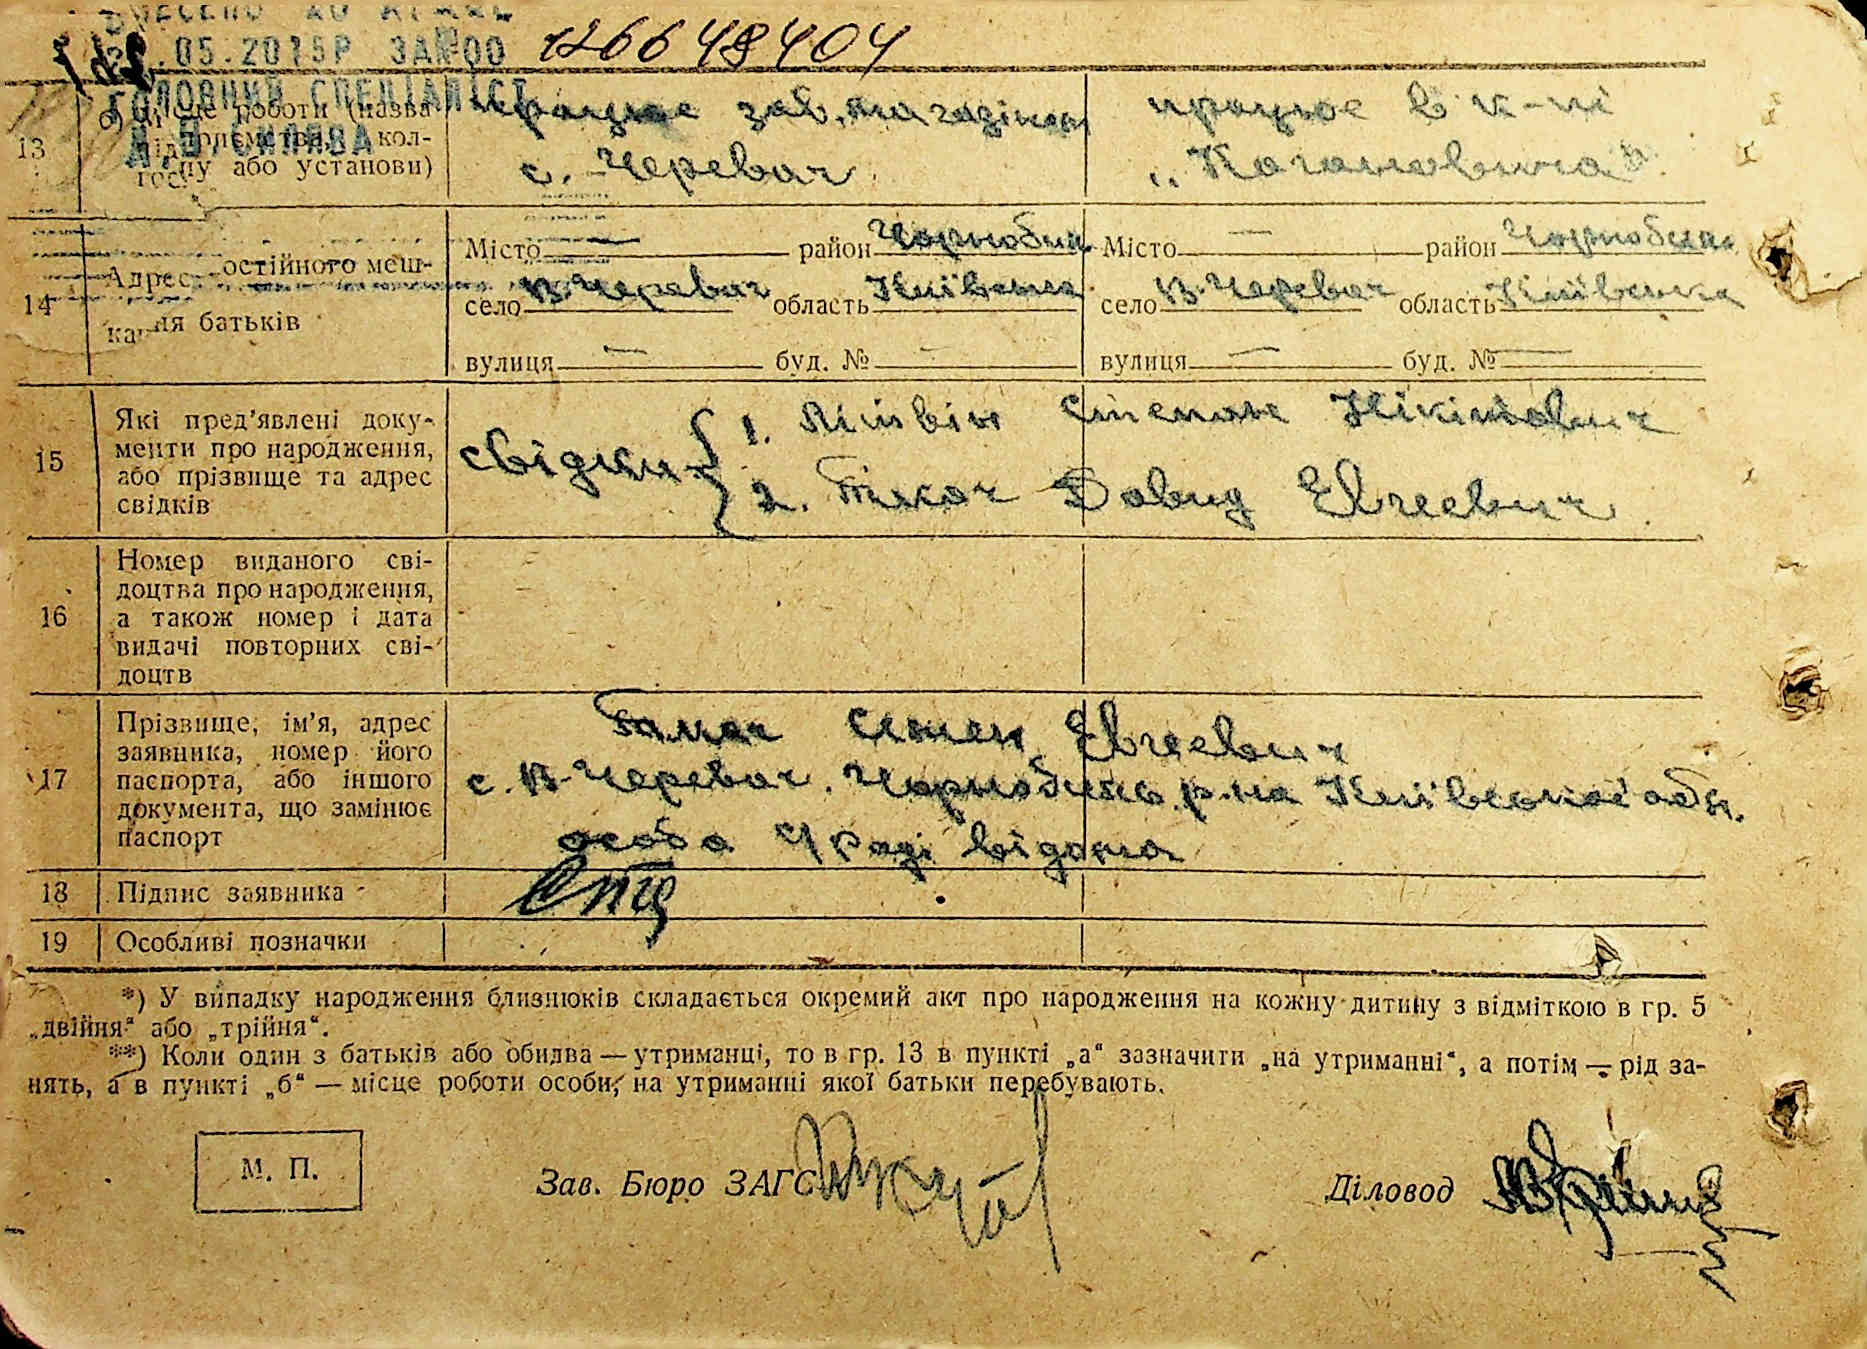 .05.2015Р ЗА№00 126648404
ГОЛОВНИЙ СПЕЦІАЛІСТ
13 б) місце роботи (назва кол- або установи)
працює зав. магазіном
с. Черевач
працює в к-пі
„Кагановича"
14 Адрес постійного меш-
кання батьків
Місто — район Чорнобил. Місто — район Чорнобил.
село В-Черевач область Київська село В-Черевач область Київська
вулиця — буд. № — вулиця — буд. № —
15 Які пред'явлені доку-
менти про народження,
або прізвище та адрес
свідків
свідки 1. Літвін Степан Нікітович
2. Давид Евгеевич
16 Номер виданого сві-
доцтва про народження,
а також номер і дата
видачі повторних сві-
доцтв
17 Прізвище, ім'я, адрес
заявника, номер його
паспорта, або іншого
документа, що замінює
паспорт
Семен Евгеевич
с. В-Черевач. Чорнобиль. р-на Київської обл.
особа У раді відома
18 Підпис заявника
19 Особливі позначки
*) У випадку народження близнюків складається окремий акт про народження на кожну дитину з відміткою в гр. 5
„двійня" або „трійня".
**) Коли один з батьків або обидва — утриманці, то в гр. 13 в пункті „а" зазначити „на утриманні", а потім — рід за-
нять, а в пункті „б" — місце роботи особи, на утриманні якої батьки перебувають.
М. П. Зав. Бюро ЗАГС Діловод